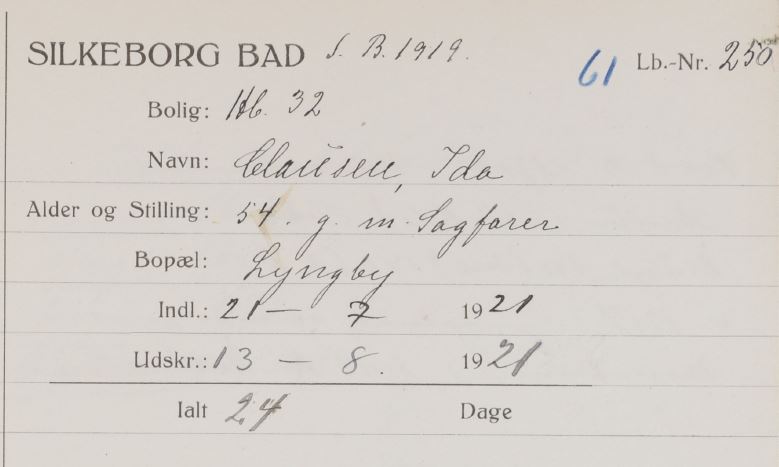 SILKEBORG BAD S. B. 1919. 61 Lb.-Nr. 250
Bolig: Hb. 32
Navn: Clausen, Ida
Alder og Stilling: 54. g. m. Sagfører
Bopæl: Lyngby
Indl.: 21 — 7 1921
Udskr.: 13 — 8. 1921
Ialt 24 Dage